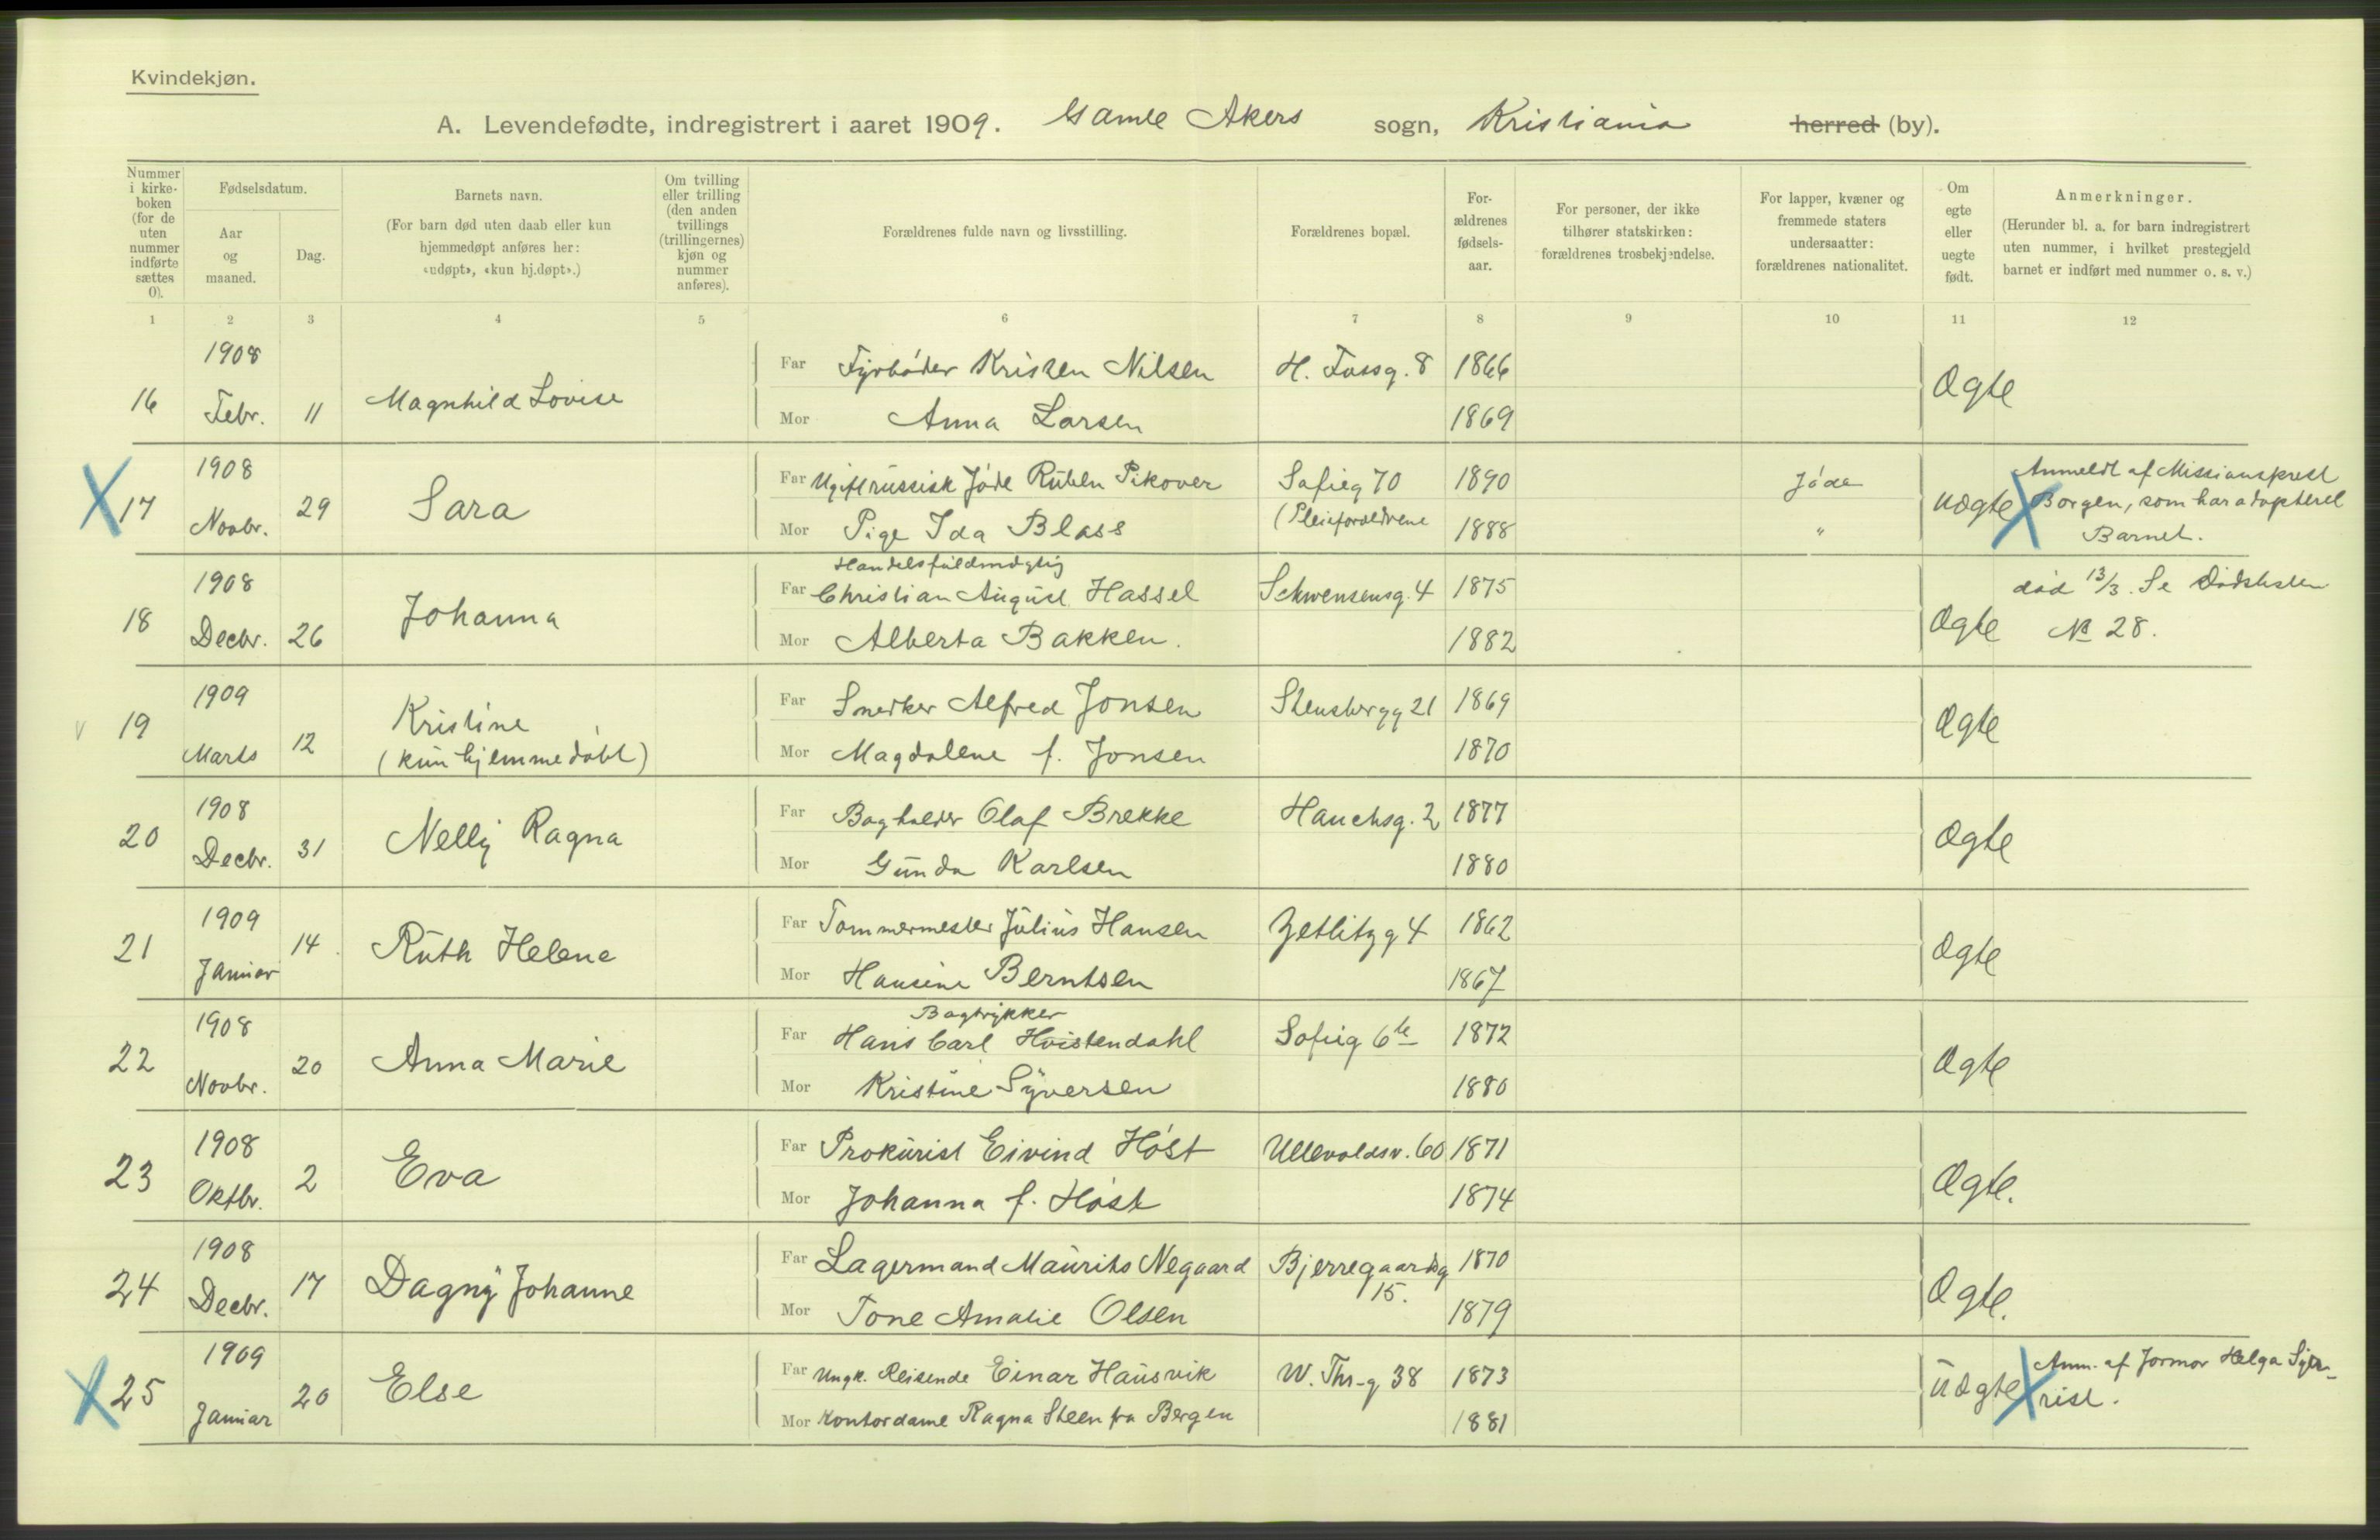 Kvindekjøn.
A. Levendefødte, indregistrert i aaret 1909. Gamle Akers sogn, Kristiania herred (by).
Nummer i kirke-boken (for de uten nummer indførte sættes 0).
Fødselsdatum.
Aar og maaned.
Dag.
Barnets navn.
(For barn død uten daab eller kun hjemmedøpt anføres her: «udøpt», «kun hj.døpt».)
Om tvilling eller trilling (den anden tvillings (trillingernes) kjøn og nummer anføres).
Forældrenes fulde navn og livsstilling.
Forældrenes bopæl.
For-ældrenes fødsels-aar.
For personer, der ikke tilhører statskirken: forældrenes trosbekjendelse.
For lapper, kvæner og fremmede staters undersaatter: forældrenes nationalitet.
Om egte eller uegte født.
Anmerkninger.
(Herunder bl. a. for barn indregistrert uten nummer, i hvilket prestegjeld barnet er indført med nummer o. s. v.)
1 2 3 4 5 6 7 8 9 10 11 12
1908
Far Fyrbøder Kristen Nilsen H. Fossg. 8 1866
16 Febr. 11 Magnhild Lovise Ægte
Mor Anna Larsen 1869
1908
Far Ugift russisk Jøde Ruben Pikover Sofieg 70 1890 Jøde Anmeldt af Missionsprest
X 17 Novbr. 29 Sara Uægte X Borgen, som har adopteret
Mor Pige Ida Blass (Pleieforældrene 1888 " Barnet.
1908 Handelsfuldmægtig
Far Christian August Hassel Schwensensg. 4 1875 død 13/3. Se Dødslisten
18 Decbr. 26 Johanna Ægte No 28.
Mor Alberta Bakken. 1882
1909
Far Snedker Alfred Jonsen Stensbergg 21 1869
v 19 Marts 12 Kristine Ægte
(kun hjemmedøbt)
Mor Magdalene f. Jonsen 1870
1908
Far Bogholder Olaf Brekke Hauchsg. 2 1877
20 Decbr. 31 Nelly Ragna Ægte
Mor Gunda Karlsen 1880
1909
Far Tømmermester Julius Hansen Zetlitzg 4 1862
21 Januar 14. Ruth Helene Ægte
Mor Hansine Berntsen 1867
1908 Bogtrykker
Far Hans Carl Hvistendahl Sofieg 6 1872
22 Novbr. 20 Anna Marie Ægte
Mor Kristine Syversen 1880
1908
Far Prokurist Eivind Høst Ullevoldsv. 60 1871
23 Oktbr. 2 Eva Ægte.
Mor Johanna f. Høst 1874
1908
Far Lagermand Maurits Negaard Bjerregaardsg 15. 1870
24 Decbr. 17 Dagny Johanne Ægte.
Mor Tone Amalie Olsen 1879
1909
Far Ungk. Reisende Einar Hausvik W. Thr-g 38 1873 Anm. af Jormor Helga
X 25 Januar 20 Else Uægte X rist.
Mor Kontordame Ragna Steen fra Bergen 1881